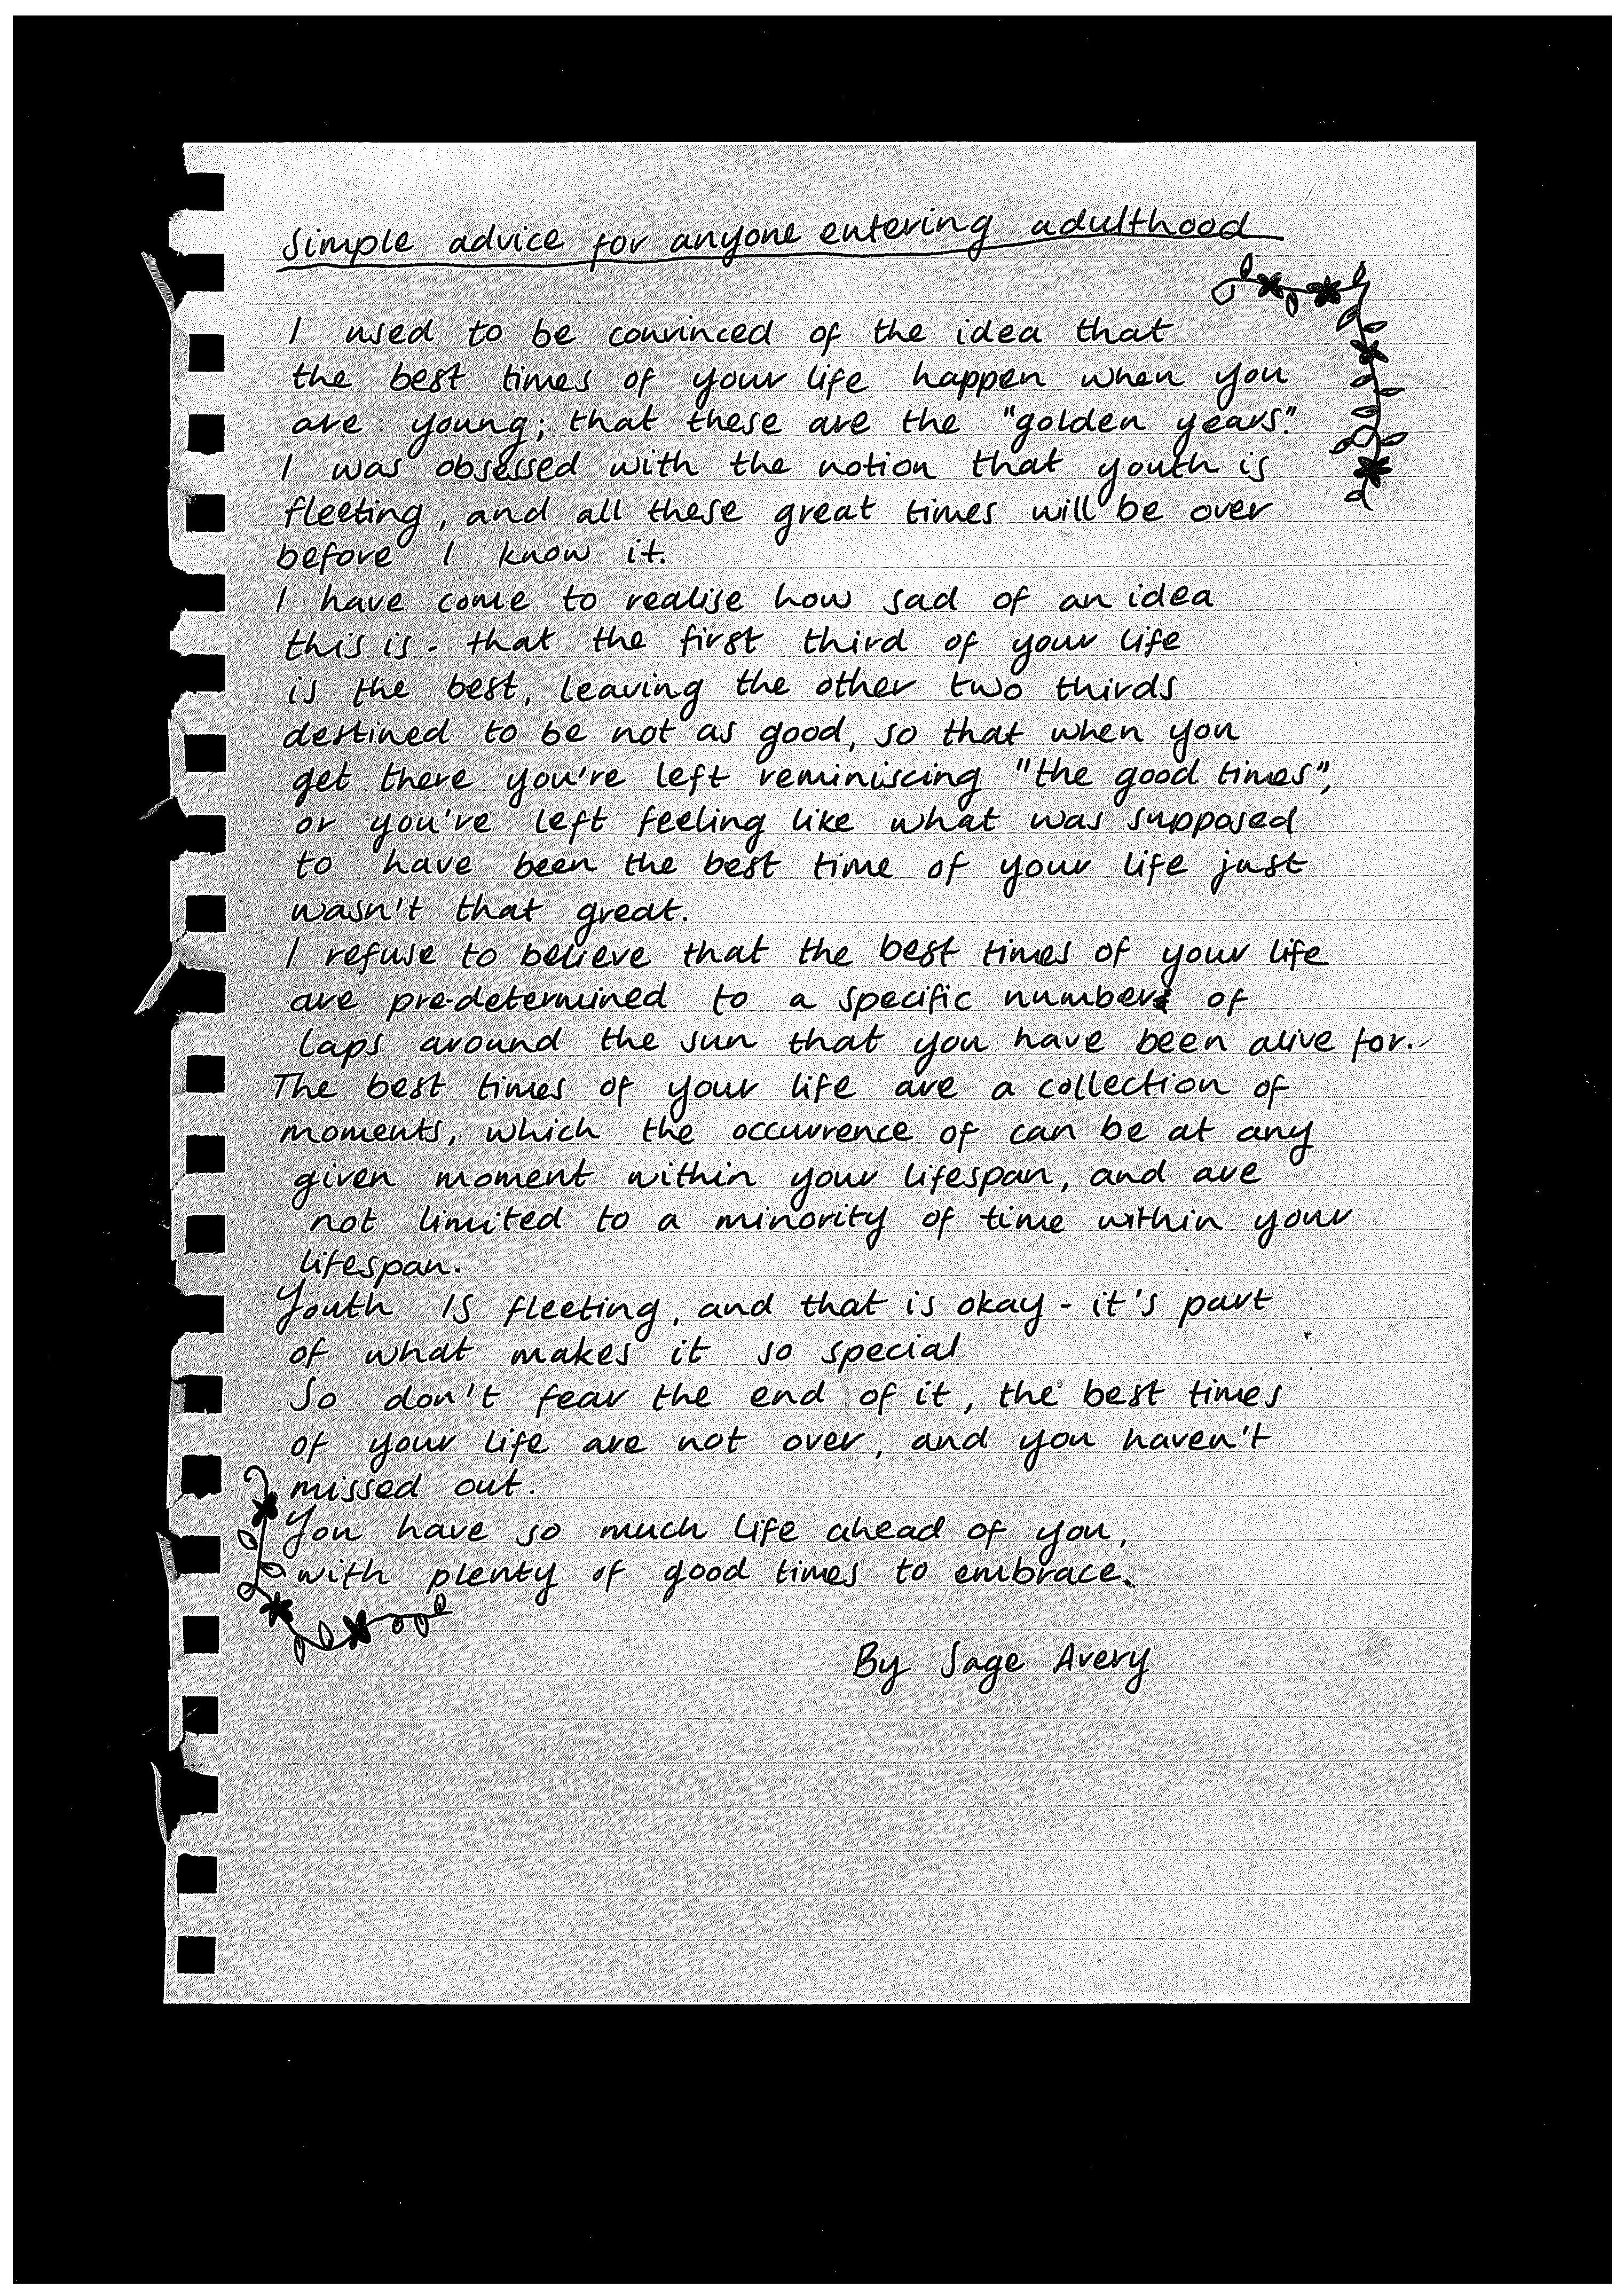 Simple advice for anyone entering adulthood
I used to be convinced of the idea that
the best times of your life happen when you
are young; that these are the "golden years."
I was obsessed with the notion that youth is
fleeting, and all these great times will be over
before I know it.
I have come to realise how sad of an idea
this is - that the first third of your life
is the best, leaving the other two thirds
destined to be not as good, so that when you
get there you're left reminiscing "the good times",
or you're left feeling like what was supposed
to have been the best time of your life just
wasn't that great.
I refuse to believe that the best times of your life
are pre-determined to a specific number of
laps around the sun that you have been alive for.
The best times of your life are a collection of
moments, which the occurrence of can be at any
given moment within your lifespan, and are
not limited to a minority of time within your
lifespan.
Youth IS fleeting, and that is okay - it's part
of what makes it so special
So don't fear the end of it, the best times
of your life are not over, and you haven't
missed out.
You have so much life ahead of you,
with plenty of good times to embrace.
By Sage Avery